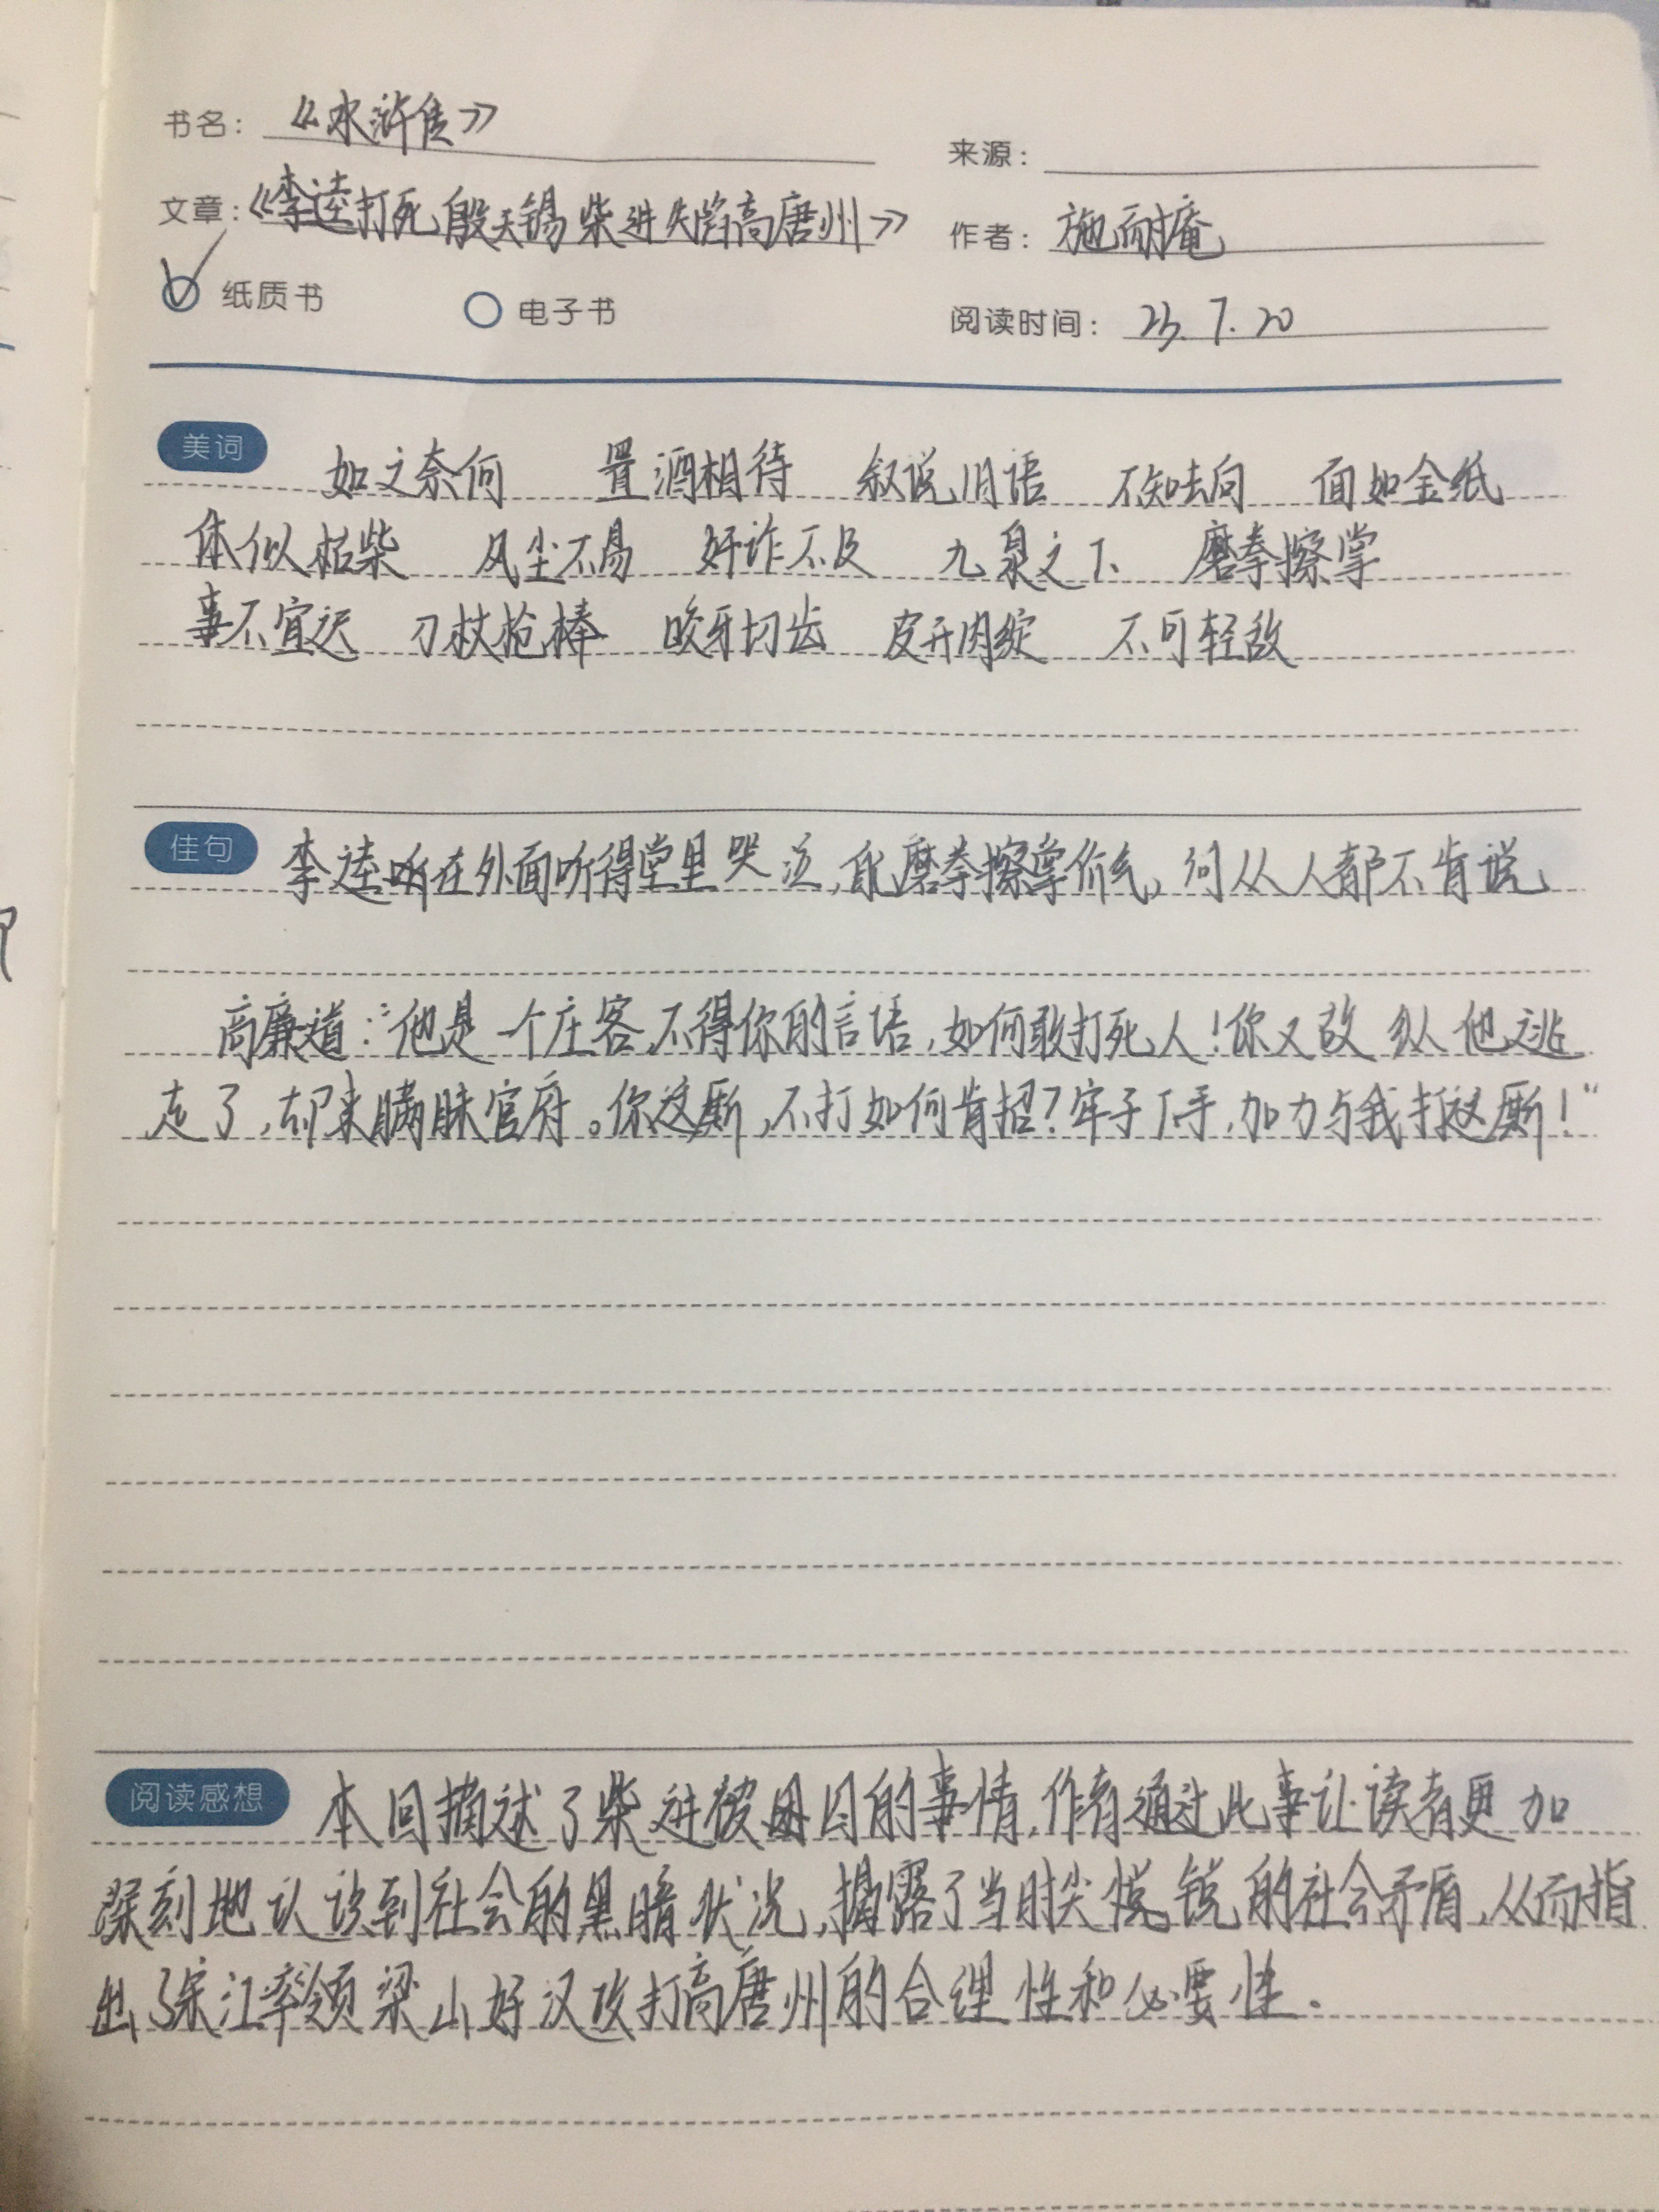 书名：《水浒传》
来源：
文章：《李逵打死殷天锡 柴进失陷高唐州》
作者：施耐庵
纸质书 电子书
阅读时间：23.7.20
美词 如之奈何 置酒相待 叙说旧语 不知去向 面如金纸
体似枯柴 风尘不易 奸诈不及 九泉之下 磨拳擦掌
事不宜迟 刀杖枪棒 咬牙切齿 皮开肉绽 不可轻敌
佳句 李逵在外面听得堂里哭泣，自己磨拳擦掌价气，问从人都不肯说
高廉道：“他是一个庄客，不得你的言语，如何敢打死人！你又故纵他逃
走了，却来瞒昧官府。你这厮，不打如何肯招？牢子下手，加力与我打这厮！”
阅读感想 本回描述了柴进被囚的事情，作者通过此事让读者更加
深刻地认识到社会的黑暗状况，揭露了当时尖锐的社会矛盾，从而指
出了宋江率领梁山好汉攻打高唐州的合理性和必要性。